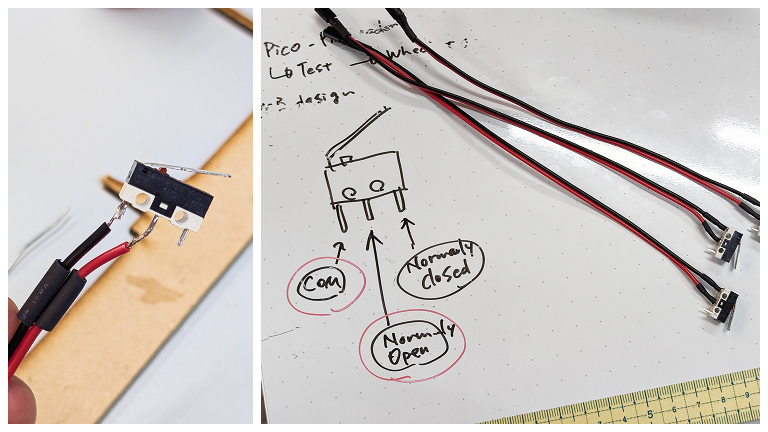 Pico -
↳ Test → Whee
design
Com
Normally
Closed
Normally
Open
5